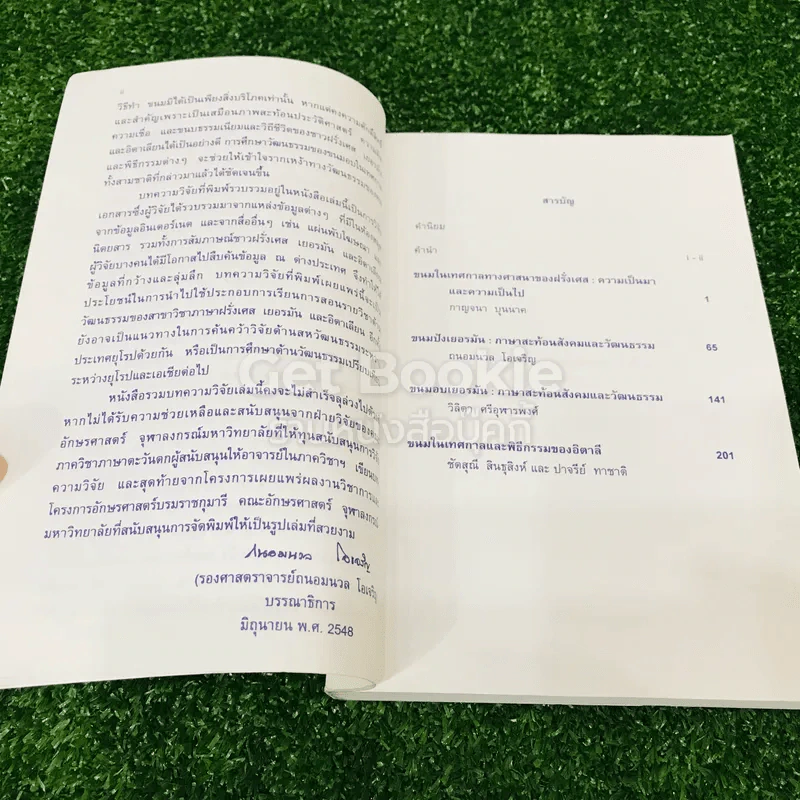 วิธีทำ ขนมมิได้เป็นเพียงสิ่งบริโภคเท่านั้น หากแต่คงความ
และสำคัญเพราะเป็นเสมือนภาพสะท้อนประวัติศาสตร์
ความเชื่อ และขนบธรรมเนียมและวิถีชีวิตของชาวฝรั่งเศส
และอิตาเลียนได้เป็นอย่างดี การศึกษาวัฒนธรรมของขนมอบใน
และพิธีกรรมต่างๆ จะช่วยให้เข้าใจรากเหง้าทางวัฒนธรรมของ
ทั้งสามชาติที่กล่าวมาแล้วได้ชัดเจนขึ้น
บทความวิจัยที่พิมพ์รวบรวมอยู่ในหนังสือเล่มนี้เป็นการวิจัย
เอกสารซึ่งผู้วิจัยได้รวบรวมมาจากแหล่งข้อมูลต่างๆ ที่มีใน
จากข้อมูลอินเตอร์เนต และจากสื่ออื่นๆ เช่น แผ่นพับโฆษณา
นิตยสาร รวมทั้งการสัมภาษณ์ชาวฝรั่งเศส เยอรมัน และอิตาเลียน
ผู้วิจัยบางคนได้มีโอกาสไปสืบค้นข้อมูล ณ ต่างประเทศ จึงทำให้
ข้อมูลที่กว้างและลุ่มลึก บทความวิจัยที่พิมพ์เผยแพร่นี้จะเป็น
ประโยชน์ในการนำไปใช้ประกอบการเรียนการสอนรายวิชาด้าน
วัฒนธรรมของสาขาวิชาภาษาฝรั่งเศส เยอรมัน และอิตาเลียน
ยังอาจเป็นแนวทางในการค้นคว้าวิจัยด้านสหวัฒนธรรมระหว่าง
ประเทศยุโรปด้วยกัน หรือเป็นการศึกษาด้านวัฒนธรรมเปรียบเทียบ
ระหว่างยุโรปและเอเชียต่อไป
หนังสือรวมบทความวิจัยเล่มนี้คงจะไม่สำเร็จลุล่วงไปด้วยดี
หากไม่ได้รับความช่วยเหลือและสนับสนุนจากฝ่ายวิจัยของคณะ
อักษรศาสตร์ จุฬาลงกรณ์มหาวิทยาลัยที่ให้ทุนสนับสนุนการวิจัย
ภาควิชาภาษาตะวันตกผู้สนับสนุนให้อาจารย์ในภาควิชาฯ เขียนบท
ความวิจัย และสุดท้ายจากโครงการเผยแพร่ผลงานวิชาการ
โครงการอักษรศาสตร์บรมราชกุมารี คณะอักษรศาสตร์ จุฬาลงกรณ์
มหาวิทยาลัยที่สนับสนุนการจัดพิมพ์ให้เป็นรูปเล่มที่สวยงาม
ถนอมนวล โอเจริญ
(รองศาสตราจารย์ถนอมนวล โอเจริญ
บรรณาธิการ
มิถุนายน พ.ศ. 2548
สารบัญ
คำนิยม
คำนำ
ขนมในเทศกาลทางศาสนาของฝรั่งเศส : ความเป็นมา
และความเป็นไป 1
กาญจนา บุนนาค
ขนมปังเยอรมัน : ภาษาสะท้อนสังคมและวัฒนธรรม 65
ถนอมนวล โอเจริญ
ขนมอบเยอรมัน : ภาษาสะท้อนสังคมและวัฒนธรรม 141
วิลิตา ศรีอุฬารพงศ์
ขนมในเทศกาลและพิธีกรรมของอิตาลี 201
ชัตสุณี สินธุสิงห์ และ ปาจรีย์ ทาชาติ
Get Bookie
ร้านหนังสือบุ๊คกี้